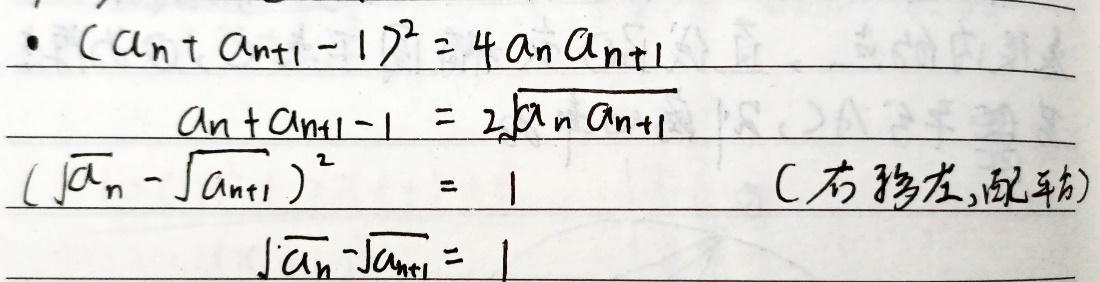 • (an + an+1 - 1)² = 4 an an+1
an + an+1 - 1 = 2√(an an+1)
(√an - √an+1)² = 1 (右移左,配平方)
√an - √an+1 = 1